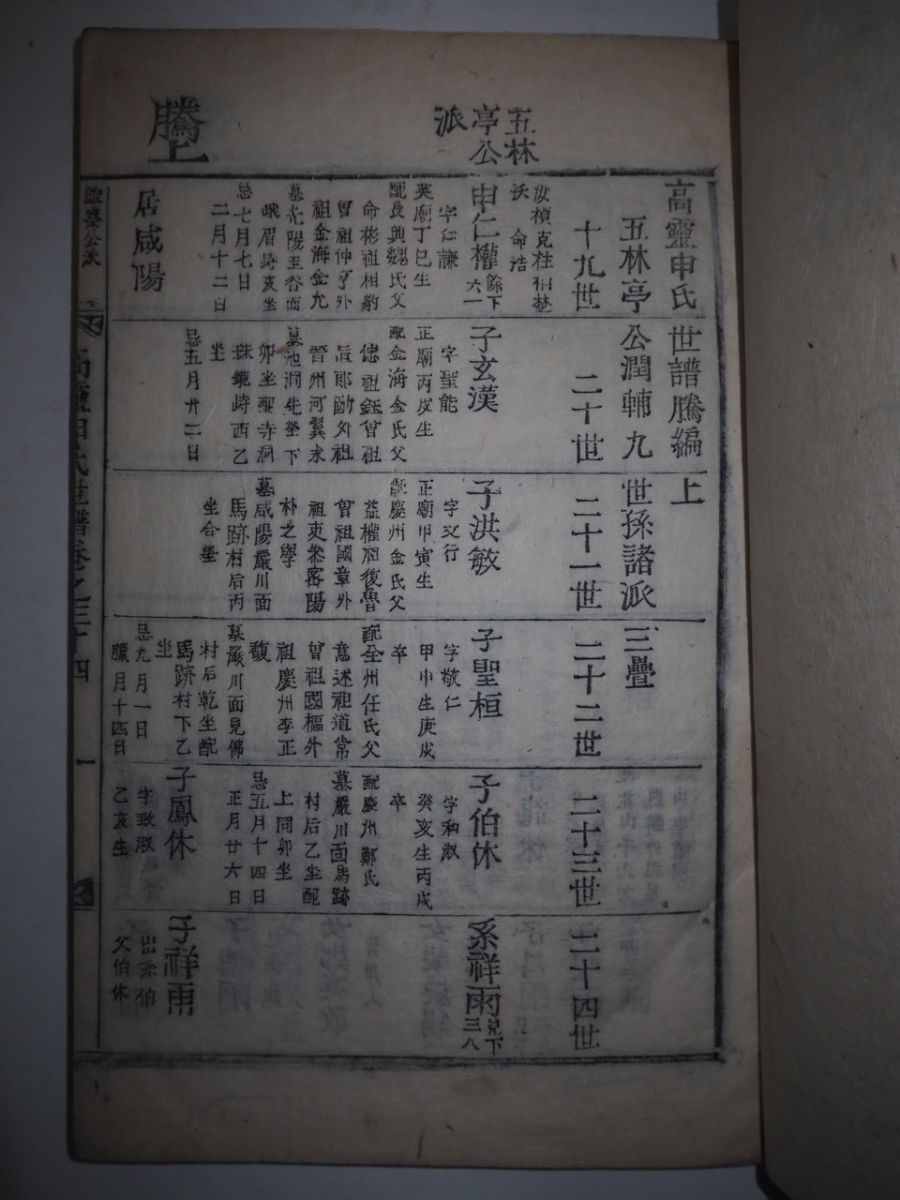 五林
亭公
派
騰上
高靈申氏世譜騰編上
五林亭公潤輔九世孫諸派三疊
十九世
沃命浩
申仁權
餘下
六一
字仁謙
英廟丁巳生
配長興魏氏父
命彬祖相豹
曾祖仲亨外
祖金海金九
墓光陽玉谷面
峨眉峙亥坐
忌七月七日
二月十二日
居咸陽
二十世
子玄漢
字聖能
正廟丙戌生
配金海金氏父
德祖鈺曾祖
晉州河翼永
墓池洞先塋下
卯坐配寺洞
珠簾峙酉乙
坐
忌五月廿二日
二十一世
子洪敏
字文行
正廟甲寅生
配慶州金氏父
益權祖復魯
曾祖國章外
祖吏參密陽
朴之學
墓咸陽嚴川面
馬跡村后丙
坐合塋
二十二世
子聖桓
字敬仁
甲申生庚戌
卒
配全州任氏父
意述祖道常
曾祖國樞外
祖慶州李正
馥
墓嚴川面見佛
村后乾坐配
馬跡村下乙
坐
忌九月一日
臘月十四日
二十三世
子伯休
字和淑
癸亥生丙戌
卒
配慶州鄭氏
墓嚴川面馬跡
村后乙坐配
上同卯坐
忌五月十四日
正月廿六日
子鳳休
字致淑
乙亥生
二十四世
系祥雨
見下
三八
子祥雨
出系伯
父伯休
監察公派
高靈申氏世譜卷之三十四
一